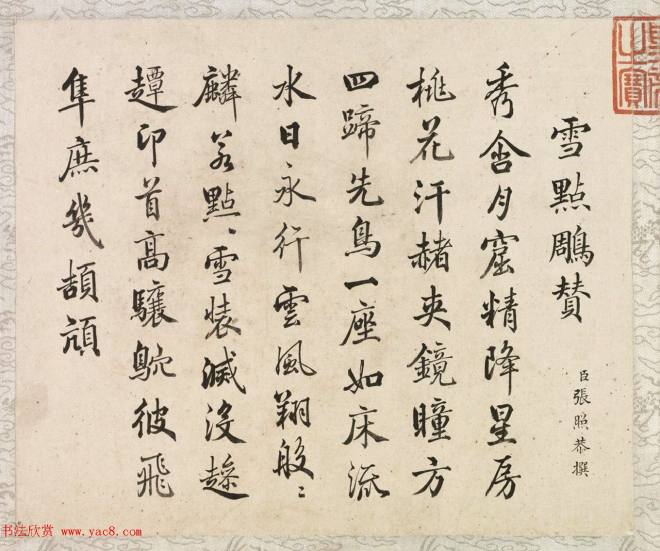 雪點鵰賛
臣張照恭撰
秀含月窟精降星房
桃花汗赭夾鏡瞳方
四蹄先鳥一座如床流
水日永行雲風翔般〻
麟若點〻雪裝滅沒趍
趯卬首高驤鴕彼飛
隼庶幾頡頏
之寶
书法欣赏 www.yac8.com